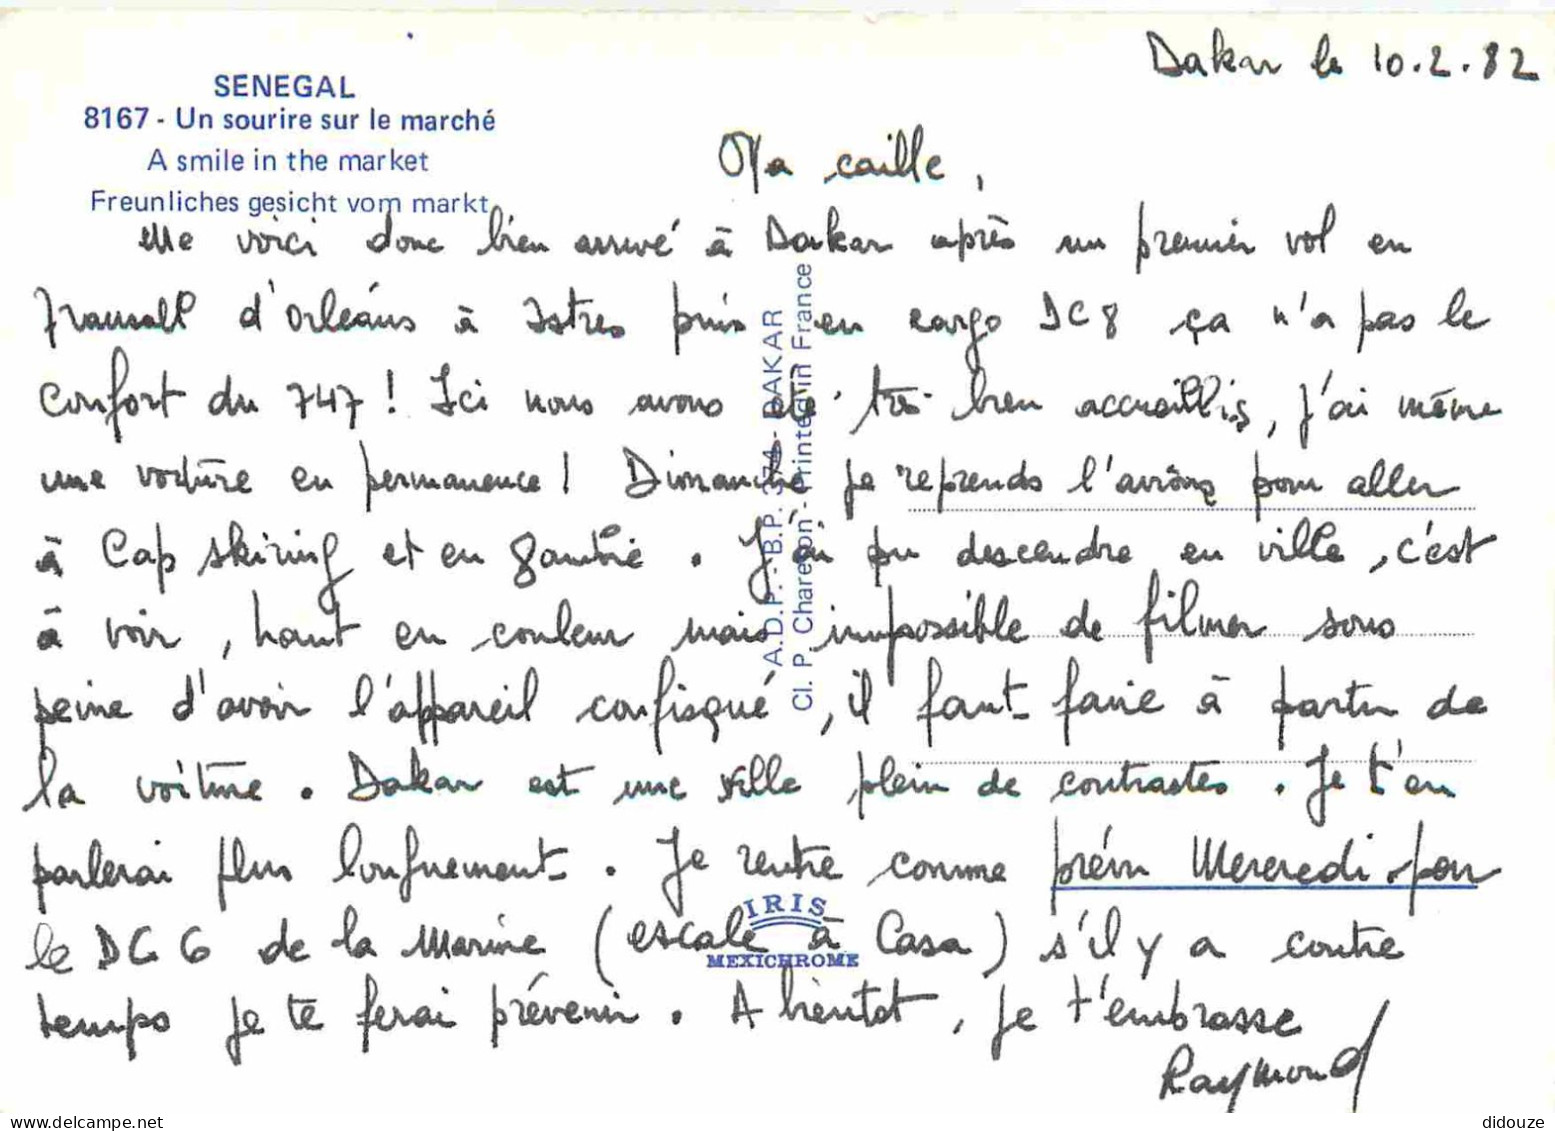 Dakar le 10.2.82
SENEGAL
8167 - Un sourire sur le marché
A smile in the market
Freunliches gesicht vom markt
Ma caille,
Me voici donc bien arrivé à Dakar après un premier vol en
Transall d'Orléans à Istres puis en cargo DC8 ça n'a pas le
confort du 747! Ici nous avons été très bien accueillis, j'ai même
une voiture en permanence! Dimanche je reprends l'avion pour aller
à Cap skiring et en gambie. J'ai pu descendre en ville, c'est
à voir, haut en couleur mais impossible de filmer sous
peine d'avoir l'appareil confisqué, il faut faire à partir de
la voiture. Dakar est une ville plein de contrastes. Je t'en
parlerai plus longuement. Je rentre comme prévu Mercredi par
le DC6 de la Marine (escale à Casa) s'il y a contre
temps je te ferai prévenir. A bientot, je t'embrasse
Raymond
A.D.P. - B.P. 374 - DAKAR
Cl. P. Chareton - Printed in France
IRIS
MEXICHROME
didouze